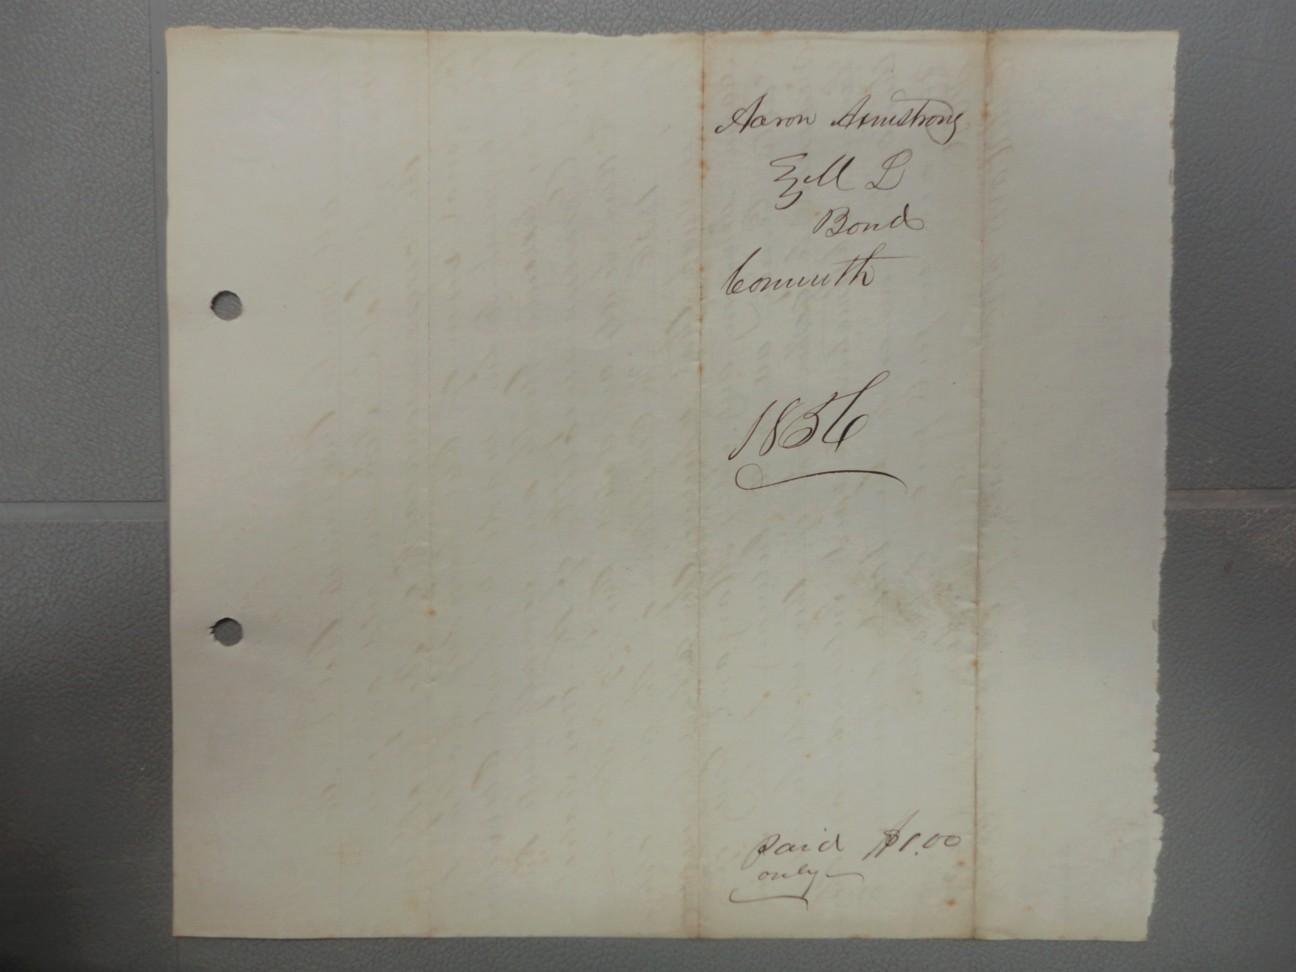 Aaron Armstrong
Bond
Comwth
1856
paid $1.00
only